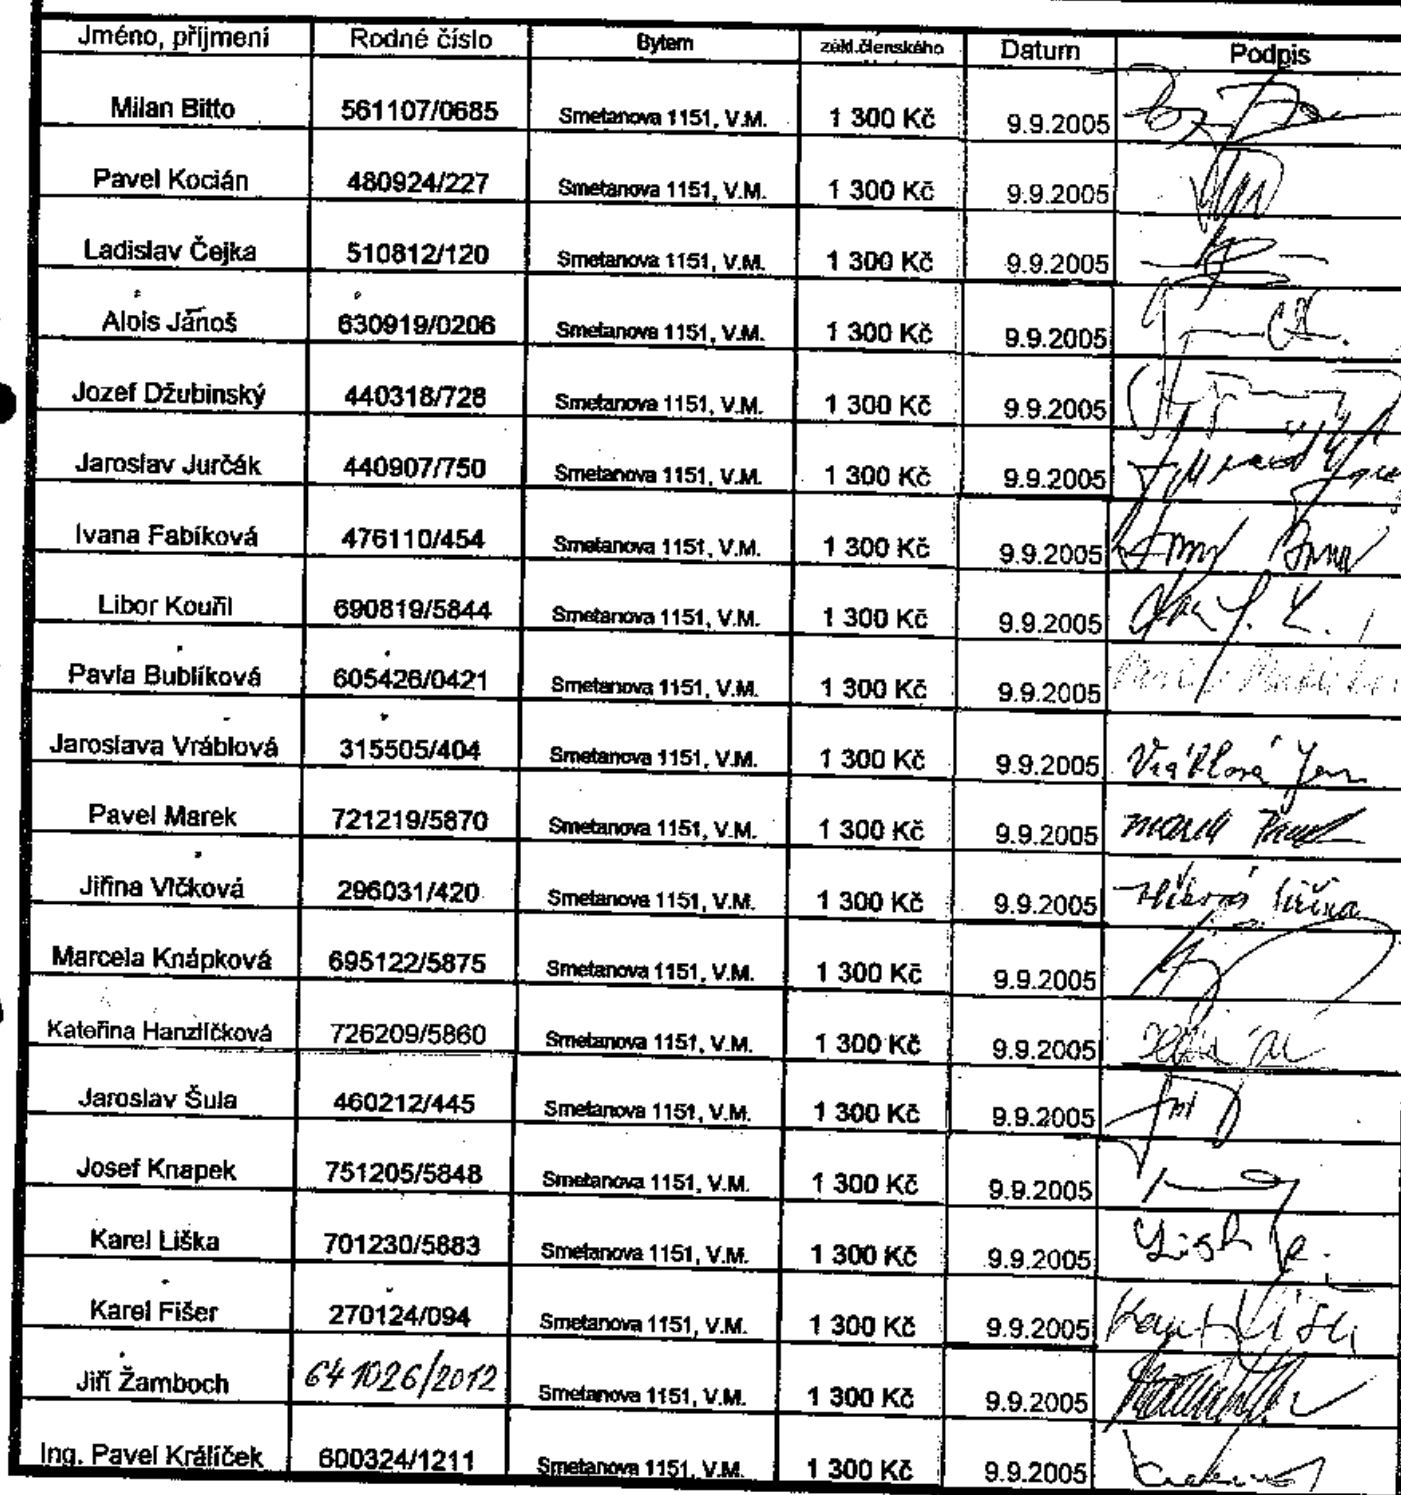 Jméno, příjmení Rodné číslo Bytem zákl.členského Datum Podpis
Milan Bitto 561107/0685 Smetanova 1151, V.M. 1 300 Kč 9.9.2005
Pavel Kocián 480924/227 Smetanova 1151, V.M. 1 300 Kč 9.9.2005
Ladislav Čejka 510812/120 Smetanova 1151, V.M. 1 300 Kč 9.9.2005
Alois Jánoš 630919/0206 Smetanova 1151, V.M. 1 300 Kč 9.9.2005
Jozef Džubinský 440318/728 Smetanova 1151, V.M. 1 300 Kč 9.9.2005
Jaroslav Jurčák 440907/750 Smetanova 1151, V.M. 1 300 Kč 9.9.2005
Ivana Fabíková 476110/454 Smetanova 1151, V.M. 1 300 Kč 9.9.2005
Libor Kouřil 690819/5844 Smetanova 1151, V.M. 1 300 Kč 9.9.2005
Pavla Bublíková 605426/0421 Smetanova 1151, V.M. 1 300 Kč 9.9.2005
Jaroslava Vráblová 315505/404 Smetanova 1151, V.M. 1 300 Kč 9.9.2005 Vráblová Jar
Pavel Marek 721219/5870 Smetanova 1151, V.M. 1 300 Kč 9.9.2005 Marek Pavel
Jiřina Vlčková 296031/420 Smetanova 1151, V.M. 1 300 Kč 9.9.2005 Vlčková Jiřina
Marcela Knápková 695122/5875 Smetanova 1151, V.M. 1 300 Kč 9.9.2005
Kateřina Hanzlíčková 726209/5860 Smetanova 1151, V.M. 1 300 Kč 9.9.2005
Jaroslav Šula 460212/445 Smetanova 1151, V.M. 1 300 Kč 9.9.2005
Josef Knapek 751205/5848 Smetanova 1151, V.M. 1 300 Kč 9.9.2005
Karel Liška 701230/5883 Smetanova 1151, V.M. 1 300 Kč 9.9.2005
Karel Fišer 270124/094 Smetanova 1151, V.M. 1 300 Kč 9.9.2005
Jiří Žamboch 641026/2012 Smetanova 1151, V.M. 1 300 Kč 9.9.2005
Ing. Pavel Králíček 600324/1211 Smetanova 1151, V.M. 1 300 Kč 9.9.2005